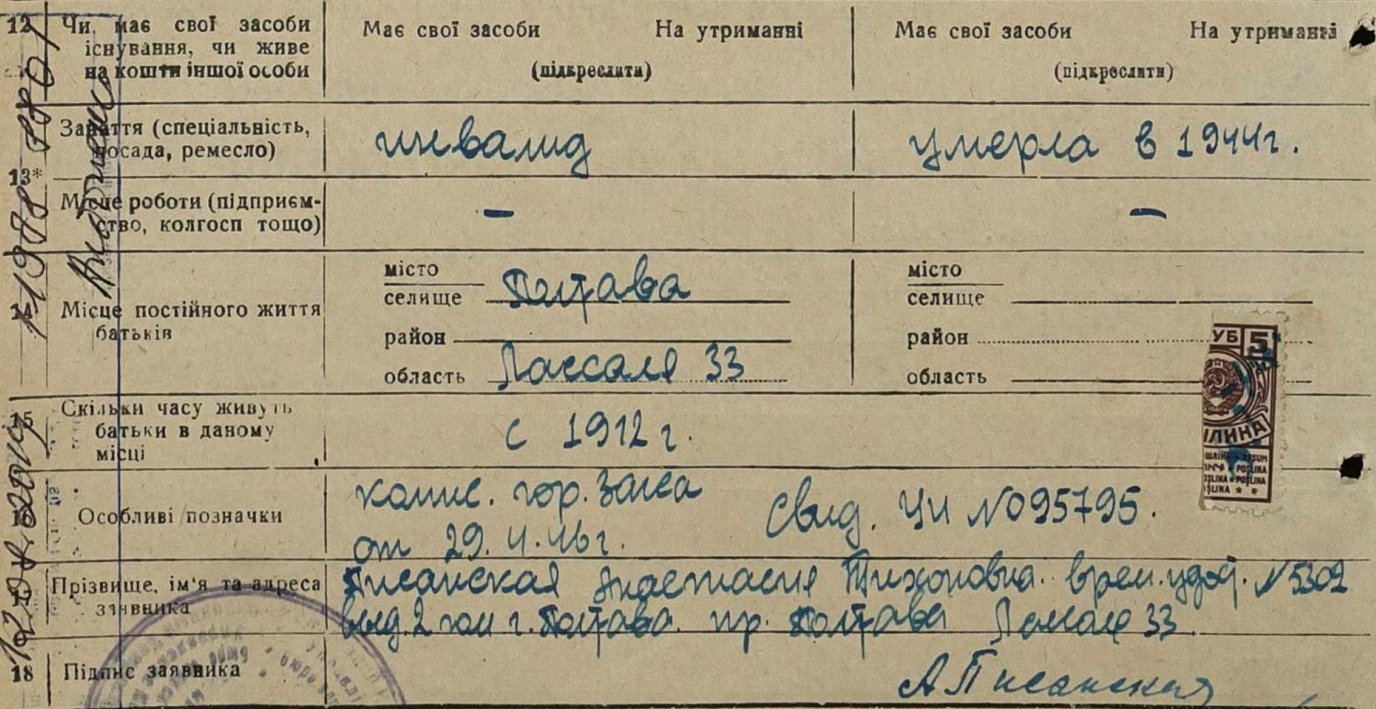 12 Чи має свої засоби існування, чи живе на кошти іншої особи
Має свої засоби На утриманні
(підкреслити)
Має свої засоби На утриманні
(підкреслити)
13* Заняття (спеціальність, посада, ремесло)
инвалид
умерла в 1944г.
Місце роботи (підприємство, колгосп тощо)
–
–
14 Місце постійного життя батьків
місто
селище Полтава
район
область Лассаля 33
місто
селище
район
область
15 Скільки часу живуть батьки в даному місці
с 1912 г.
16 Особливі позначки
гор. Загса
от 29. 46 г.
Свид. № 095795.
Прізвище, ім'я та адреса заявника
Писанская Анастасия Тихоновна врем. удос. № 5302
выд. 2 г. Полтава. пр. Полтава Лассаля 33
18 Підпис заявника
А Писанская
УБ 5
ПОSLINA